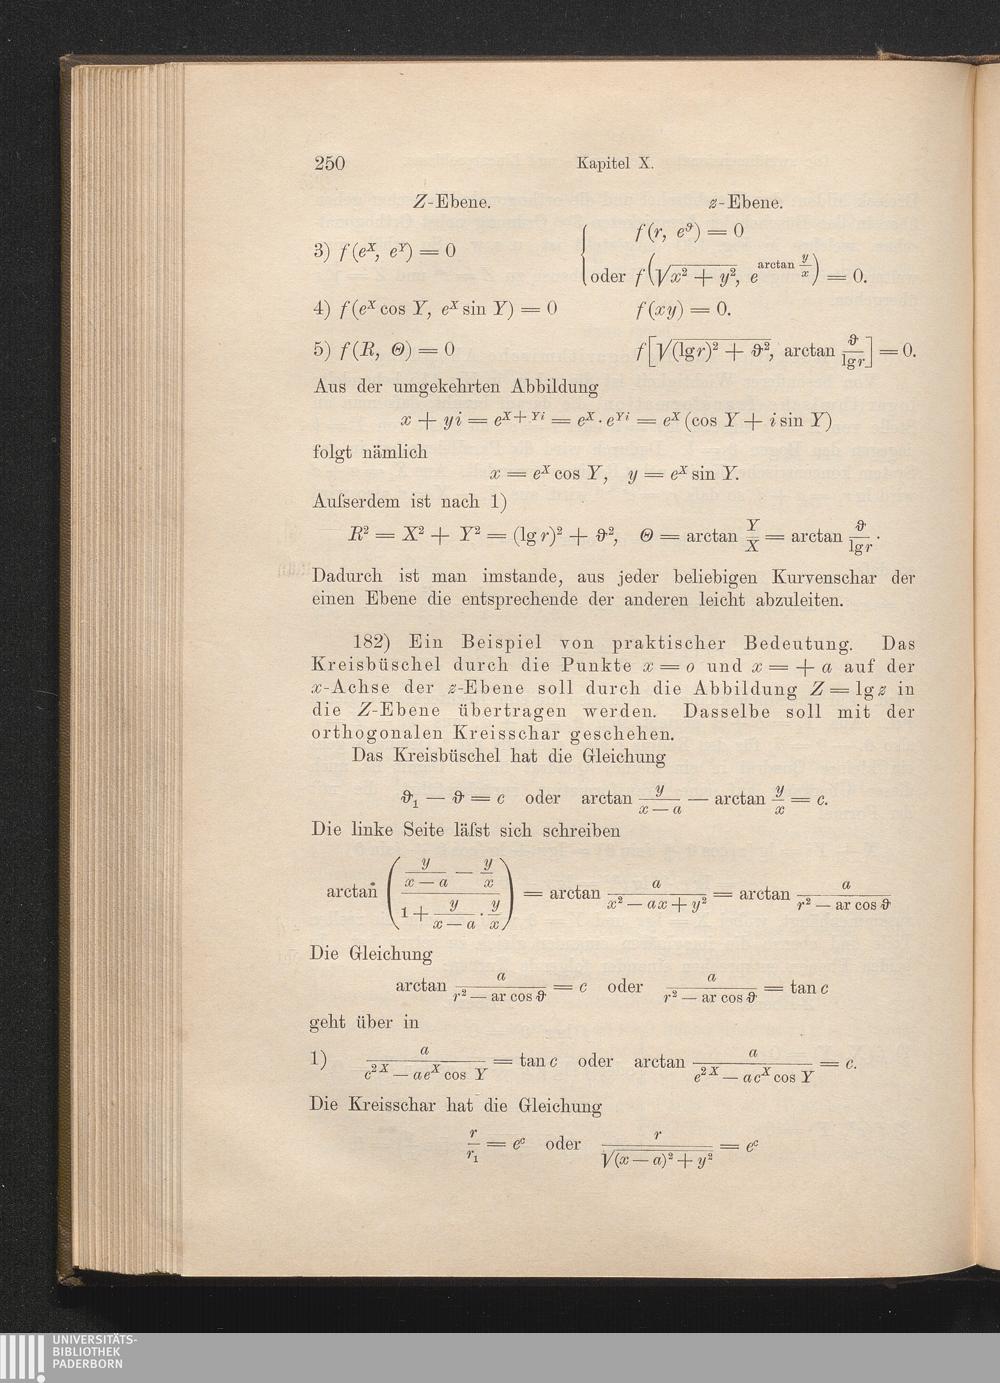 250 Kapitel X.
Z-Ebene. z-Ebene.
3) f(e^X, e^Y) = 0 { f(r, e^ϑ) = 0
oder f(√(x² + y²), e^(arctan y/x)) = 0.
4) f(e^X cos Y, e^X sin Y) = 0 f(xy) = 0.
5) f(R, Θ) = 0 f[√((lg r)² + ϑ²), arctan ϑ/lg r] = 0.
Aus der umgekehrten Abbildung
x + yi = e^(X+Yi) = e^X · e^(Yi) = e^X (cos Y + i sin Y)
folgt nämlich
x = e^X cos Y, y = e^X sin Y.
Auſserdem ist nach 1)
R² = X² + Y² = (lg r)² + ϑ², Θ = arctan Y/X = arctan ϑ/lg r ·
Dadurch ist man imstande, aus jeder beliebigen Kurvenschar der
einen Ebene die entsprechende der anderen leicht abzuleiten.
182) Ein Beispiel von praktischer Bedeutung. Das
Kreisbüschel durch die Punkte x = o und x = + a auf der
x-Achse der z-Ebene soll durch die Abbildung Z = lg z in
die Z-Ebene übertragen werden. Dasselbe soll mit der
orthogonalen Kreisschar geschehen.
Das Kreisbüschel hat die Gleichung
ϑ₁ — ϑ = c oder arctan y/(x — a) — arctan y/x = c.
Die linke Seite läſst sich schreiben
arctan ((y/(x — a) — y/x)/(1 + y/(x — a) · y/x)) = arctan a/(x² — ax + y²) = arctan a/(r² — ar cos ϑ)
Die Gleichung
arctan a/(r² — ar cos ϑ) = c oder a/(r² — ar cos ϑ) = tan c
geht über in
1) a/(c^(2X) — ae^X cos Y) = tan c oder arctan a/(e^(2X) — ac^X cos Y) = c.
Die Kreisschar hat die Gleichung
r/r₁ = e^c oder r/√((x — a)² + y²) = e^c
UNIVERSITÄTS-
BIBLIOTHEK
PADERBORN